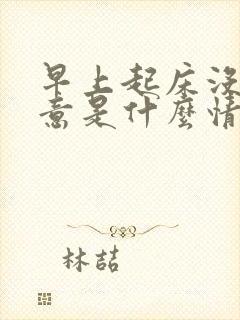 早上起床没
意是什麼情
林喆